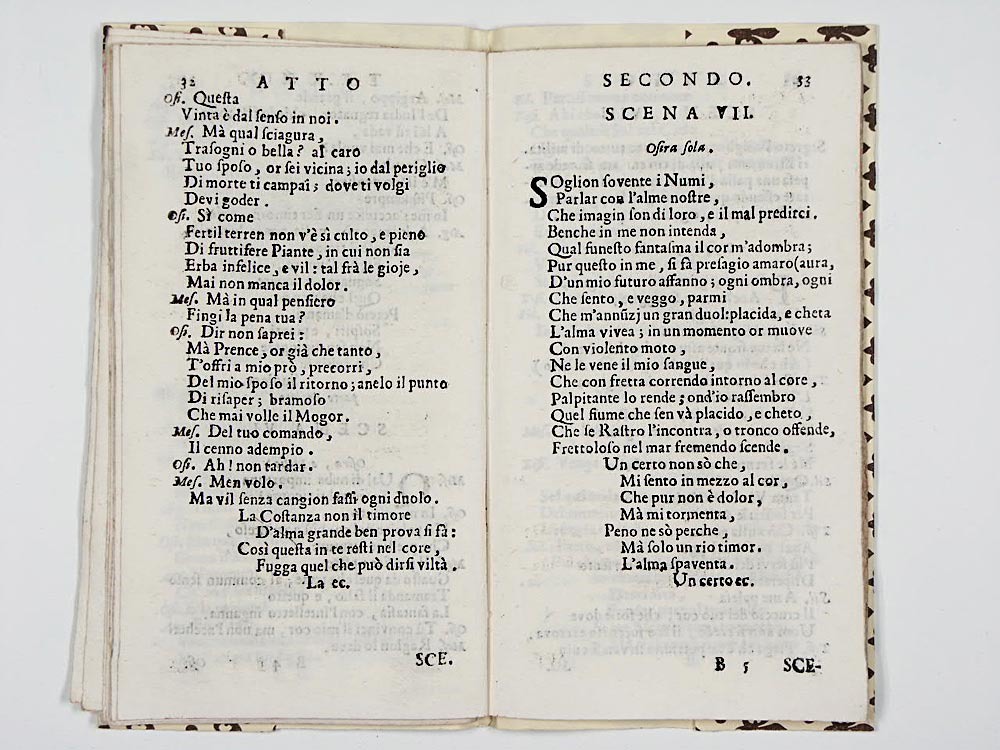 32 ATTO
Osi. Questa
Vinta è dal senso in noi.
Mes. Mà qual sciagura,
Trasogni o bella? al caro
Tuo sposo, or sei vicina; io dal periglio
Di morte ti campai; dove ti volgi
Devi goder.
Osi. Sì come
Fertil terren non v'è sì culto, e pieno
Di fruttifere Piante, in cui non sia
Erba infelice, e vil: tal frà le gioje,
Mai non manca il dolor.
Mes. Mà in qual pensiero
Fingi la pena tua?
Osi. Dir non saprei:
Mà Prence, or già che tanto,
T'offri a mio prò, precorri,
Del mio sposo il ritorno; anelo il punto
Di risaper; bramoso
Che mai volle il Mogor.
Mes. Del tuo comando,
Il cenno adempio.
Osi. Ah! non tardar.
Mes. Men volo.
Ma vil senza cangion fassi ogni duolo.
La Costanza non il timore
D'alma grande ben prova si fà:
Così questa in te resti nel core,
Fugga quel che può dirsi viltà.
La ec.
SCE.
SECONDO. 53
SCENA VII.
Osira sola.
SOglion sovente i Numi,
Parlar con l'alme nostre,
Che imagin son di loro, e il mal predirci.
Benche in me non intenda,
Qual funesto fantasma il cor m'adombra;
Pur questo in me, si fà presagio amaro (aura,
D'un mio futuro affanno; ogni ombra, ogni
Che sento, e veggo, parmi
Che m'annũzj un gran duol: placida, e cheta
L'alma vivea; in un momento or muove
Con violento moto,
Ne le vene il mio sangue,
Che con fretta correndo intorno al core,
Palpitante lo rende; ond'io rassembro
Quel fiume che sen và placido, e cheto,
Che se Rastro l'incontra, o tronco offende,
Frettoloso nel mar fremendo scende.
Un certo non sò che,
Mi sento in mezzo al cor,
Che pur non è dolor,
Mà mi tormenta,
Peno ne sò perche,
Mà solo un rio timor.
L'alma spaventa.
Un certo ec.
B 5 SCE-